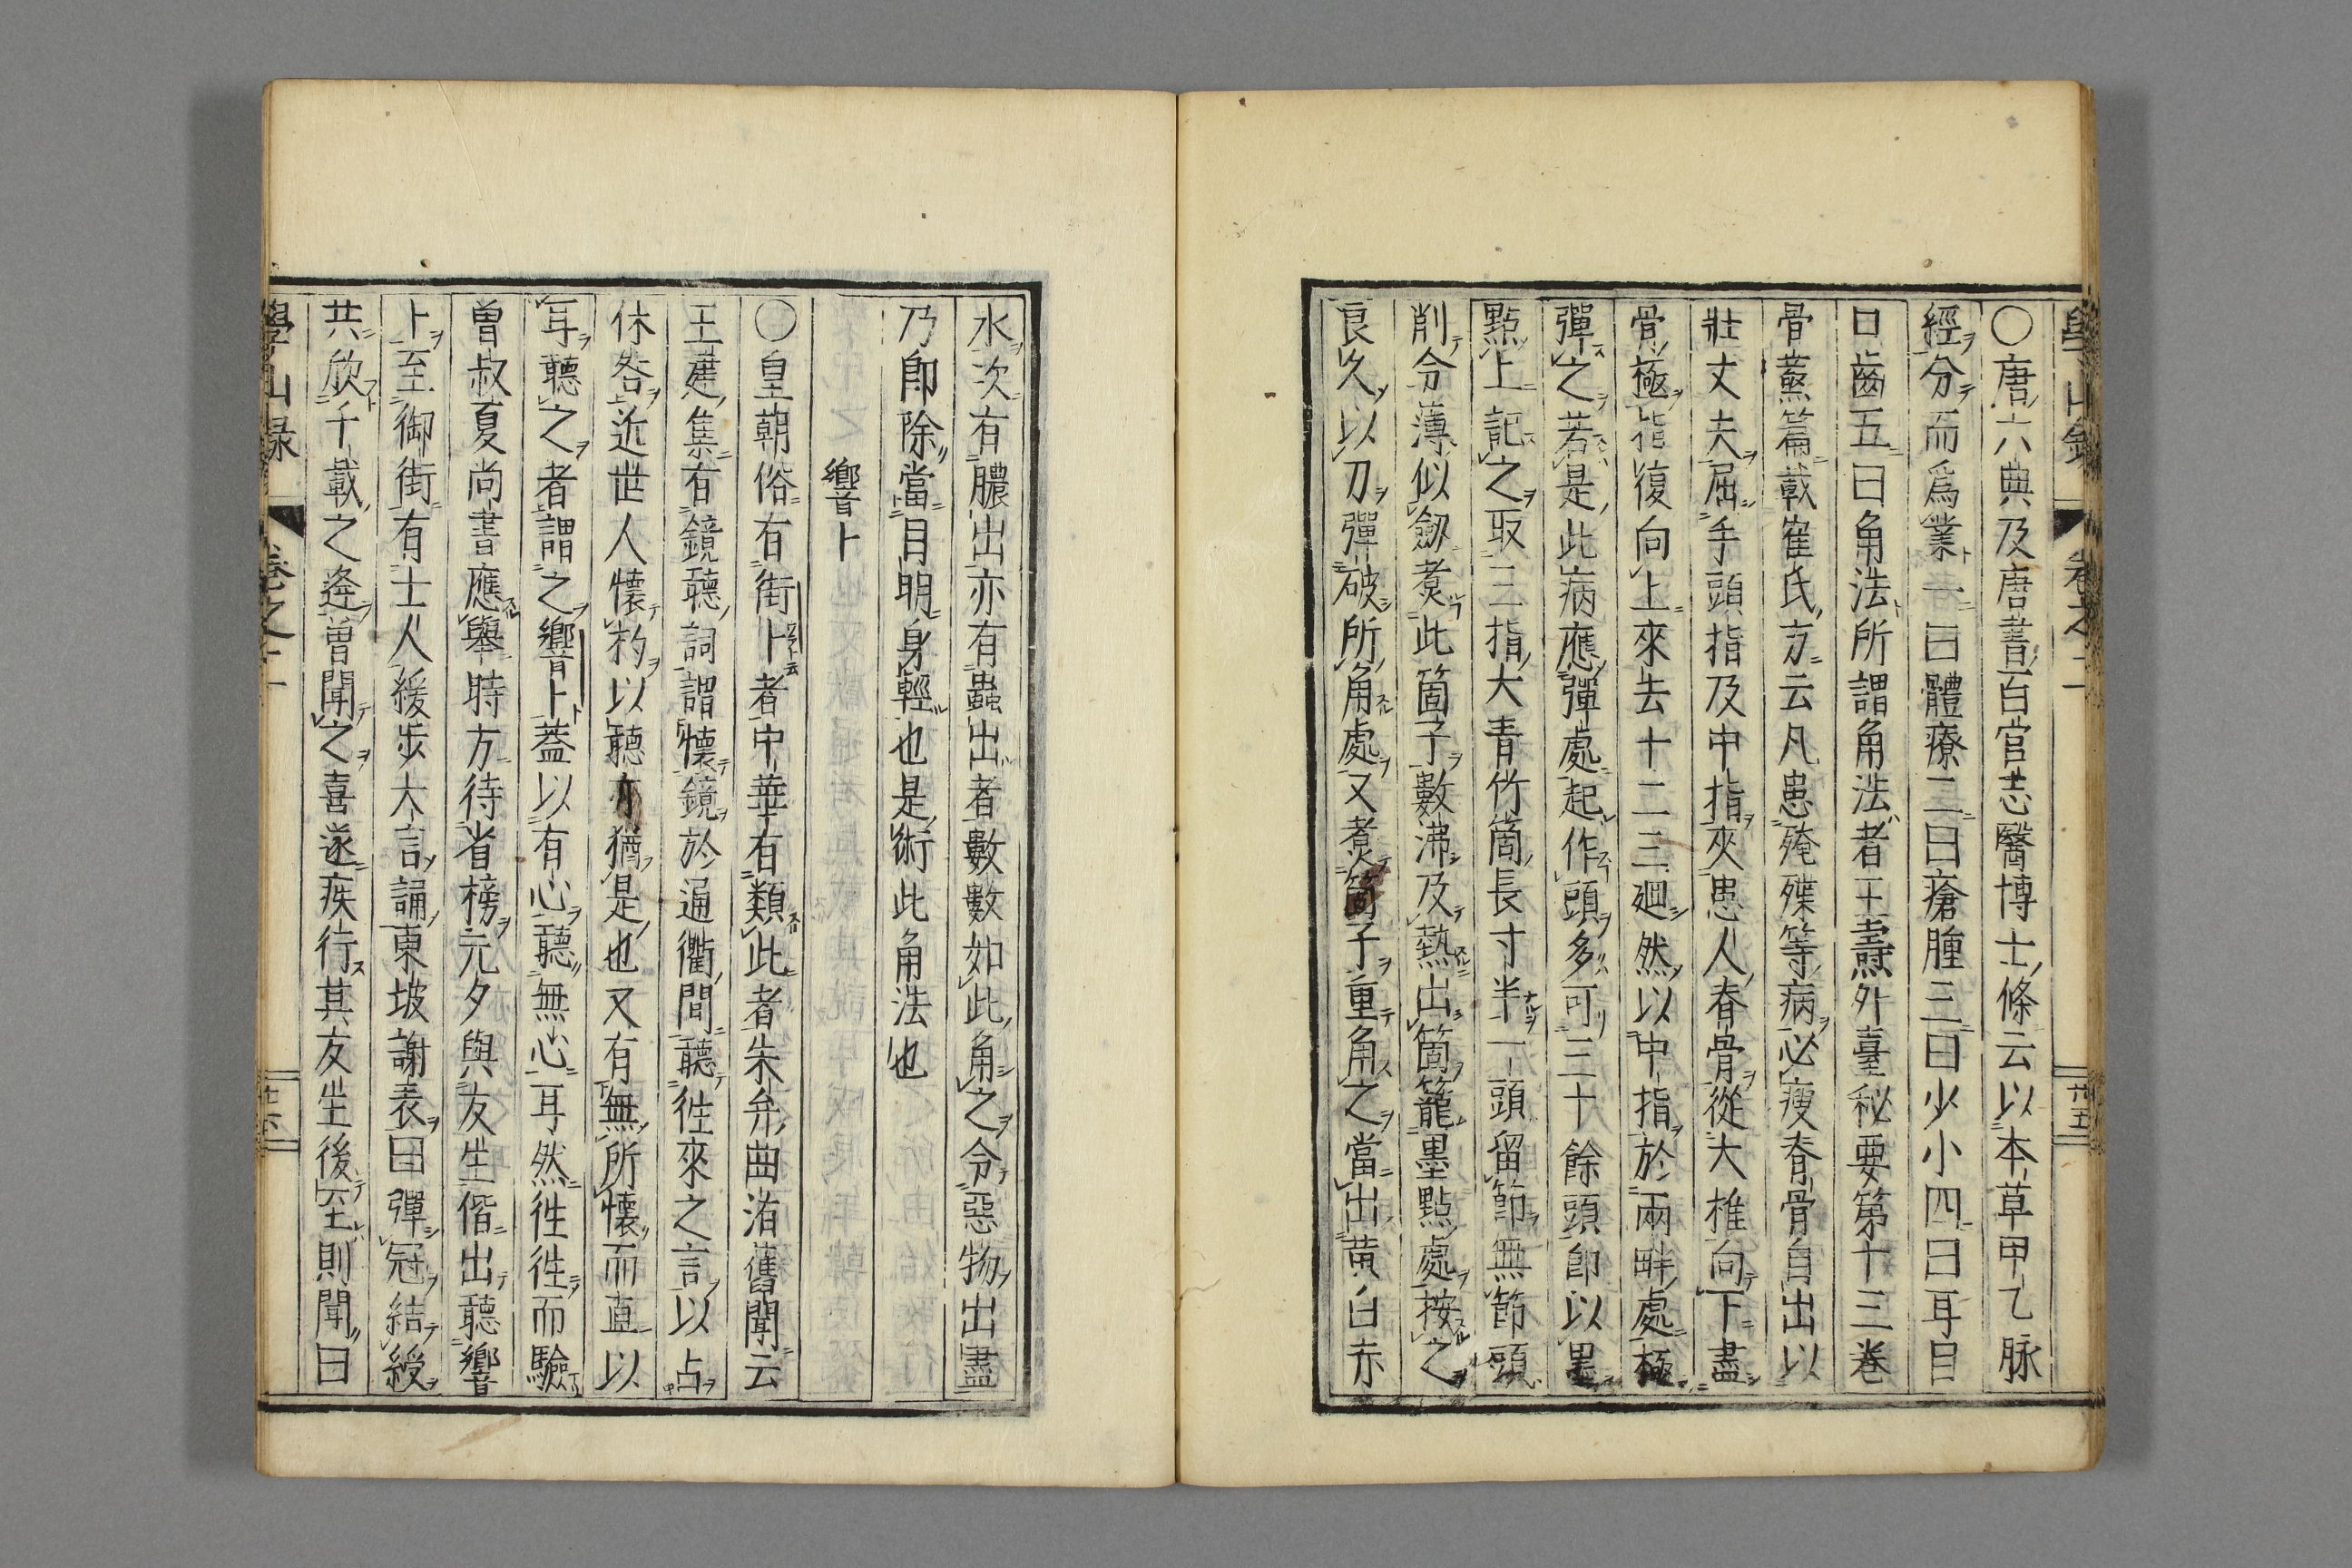 〇唐六典及唐書百官志醫博士條云以本草甲乙脉
經分而爲業一曰體療二曰瘡腫三曰少小四曰耳目
口齒五曰角法所謂角法者王燾外臺秘要第十三卷
骨蒸篇載崔氏方云凡患殗殜等病必瘦脊骨自出以
壯丈夫屈手頭指及中指夾患人脊骨從大椎向下盡
骨極指復向上來去十二三廻然以中指於兩畔處極
彈之若是此病應彈處起作頭多可三十餘頭即以墨
點上記之取三指大青竹筒長寸半一頭留節無節頭
削令薄似劔煑此筒子數沸及熱出筒籠墨點處按之
良久以刀彈破所角處又煑筒子重角之當出黃白赤
水次有膿出亦有蟲出者數數如此角之令惡物出盡
乃即除當目明身輕也是術此角法也
響卜
〇皇朝俗有街卜者中華有類此者朱弁曲洧舊聞云
王建集有鏡聽詞謂懷鏡於通衢間聽徃來之言以占
休咎近世人懷杓以聽亦猶是也又有無所懷而直以
耳聽之者謂之響卜蓋以有心聽無心耳然徃徃而驗
曽叔夏尚書應舉時方待省榜元夕與友生偕出聽響
卜至御街有士人緩步大言誦東坡謝表曰彈冠結綬
共欣千載之逄曽聞之喜遂疾行其友生後至則聞曰
學山録 卷之二